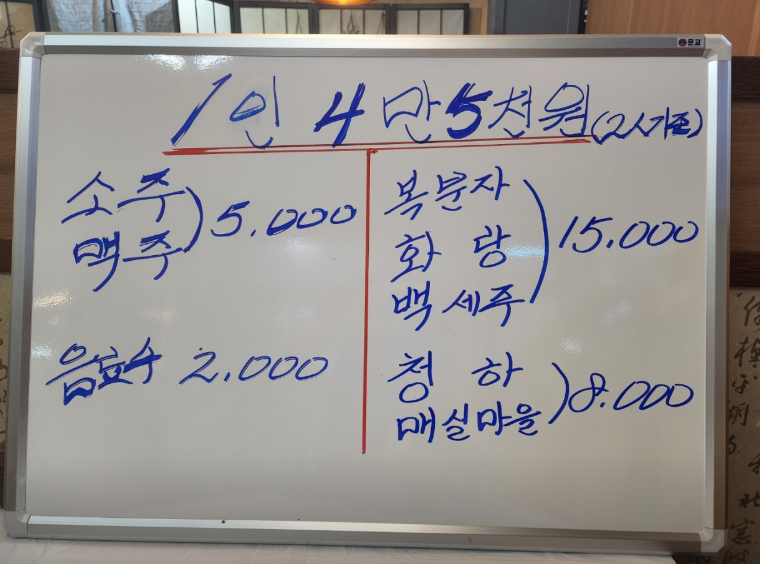 1인 4만5천원(2시기준)
소주
맥주
5.000
음료수 2.000
복분자
화랑
백세주
15.000
청하
매실마을
8.000
문교